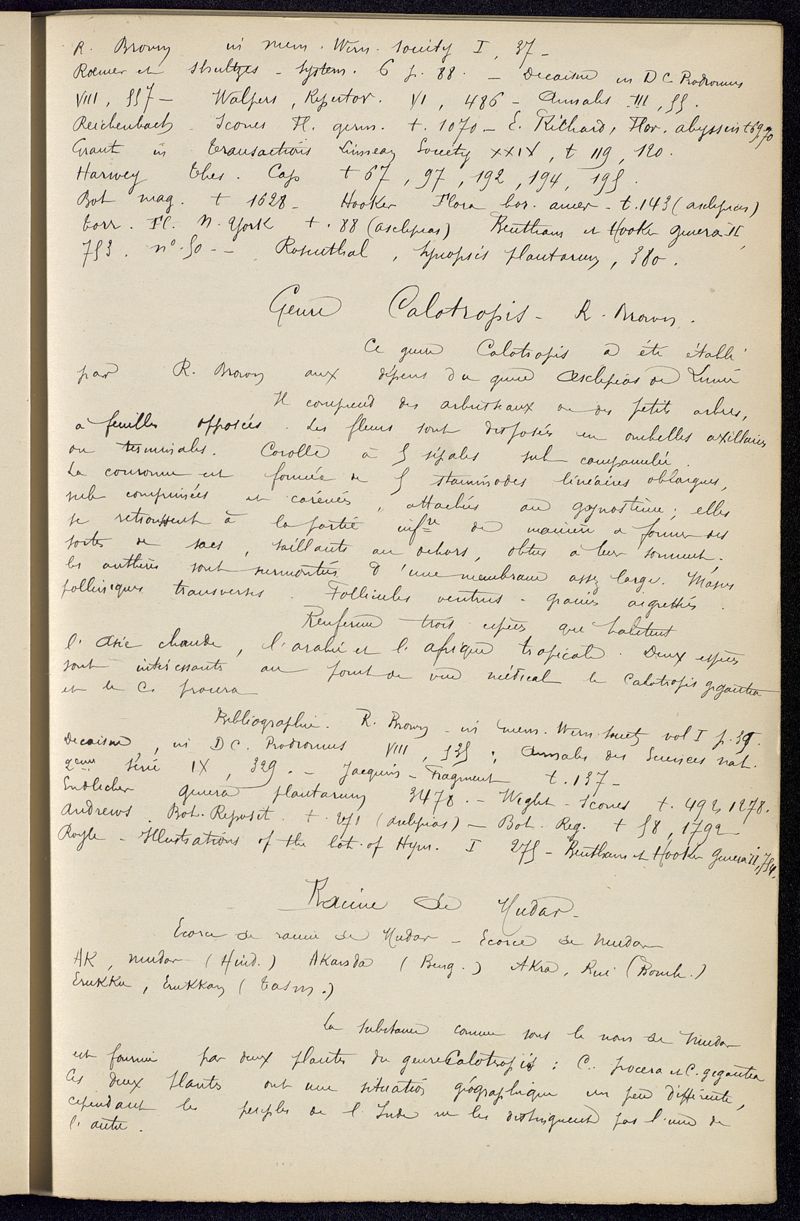 R. Brown in mem. Wern. Society I, 37 –
Roemer et Shultzes – System. 6 p. 88. – Decaisne in DC Prodromus
VIII, 557 – Walpers, Repertor. VI, 486 – Annales III, 55.
Reichenbach – Icones Fl. germ. t. 1070 – E. Richard, Flor. abyssin t 69, 70
Grant in transactions Linnean Society XXIX, t 119, 120.
Harwey Thes. Cap t 67, 97, 192, 194, 195.
Bot mag. t 1628 – Hooker Flora bor. amer – t. 143 (asclepias)
torr. Fl. N. York t. 88 (asclepias) Bentham et Hooker Genera II,
753. n° 50 – – Rosenthal, Synopsis plantarum, 380.
Genre Calotropis – R. Brown.
Ce genre Calotropis a été établi
par R. Brown aux dépens du genre Asclepias de Linné
Il comprend des arbrisseaux ou des petits arbres,
à feuilles opposées. Les fleurs sont disposées en ombelles axillaires
ou terminales. Corolle à 5 sépales sub campanulée.
La couronne est formée de 5 staminodes linéaires oblongues,
sub comprimées et carénées, attachées au gynostème; elles
se retroussent à la partie infre de manière a former des
sortes de sacs, saillants au dehors, obtus à leur sommet.
les anthères sont surmontées d'une membrane assez large. Masses
polliniques transverses. Follicules ventrus – graines aigrettées.
Renferme trois espèces que habitent
l'Asie chaude, l'arabie et l'afrique tropicale. Deux espèces
sont intéressants au point de vue médical le Calotropis gigantea
et le C. procera
Bibliographie. R. Brown – in mem. Wern. Society vol I p. 39.
Decaisne, in DC. Prodromus VIII, 535; Annales des Sciences nat.
2eme série IX, 329. – Jacquin – Fragment t. 137 –
Endlicher genera plantarum 3478. – Wight – Icones t. 492, 1278.
Andrews. Bot. Reposit. t. 271 (asclepias) – Bot. Reg. t 58, 1792
Royle – Illustrations of the bot. of Hym. I 275 – Bentham et Hooker Genera II, 754.
Racine de Mudar –
Ecorce de racine de Mudar – Ecorce de mudar
AK, mudar (Hind.) Akanda (Beng.) Akra, Rui (Bomb.)
Erukku, Erukkam (Tam.)
La substance connue sous le nom de mudar
est fournie par deux plantes du genre Calotropis : C. procera et C. gigantea
Ces deux plantes ont une situation géographique un peu différente,
cependant les peuples de l'Inde ne les distinguent pas l'une de
l'autre.